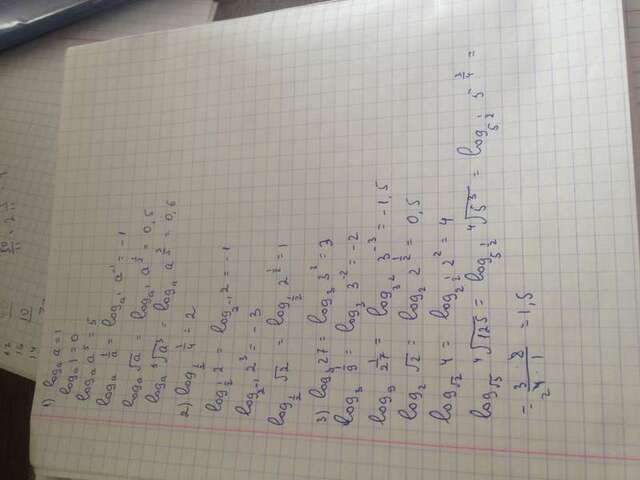 12
16 10
14
80/11 = 2 3/11
1) logₐ a = 1
logₐ 1 = 0
logₐ a⁵ = 5
logₐ 1/a = logₐ¹ a⁻¹ = -1
logₐ √a = logₐ¹ a^(1/2) = 0,5
logₐ ⁵√a³ = logₐ a^(3/5) = 0,6
2) log_(1/2) 1/4 = 2
log_(1/2) 2 = log_(2⁻¹) 2 = -1
log_(2⁻¹) 2³ = -3
log_(1/2) √2 = log_(1/2) 2^(1/2) = 1
3) log₃ 27 = log₃ 3³ = 3
log₃ 1/9 = log₃ 3⁻² = -2
log₉ 1/27 = log_(3²) 3⁻³ = -1,5
log₂ √2 = log₂ 2^(1/2) = 0,5
log_(√2) 4 = log_(2^(1/2)) 2² = 4
log_(√5) ⁴√125 = log_(5^(1/2)) ⁴√5³ = log_(5^(1/2)) 5^(3/4) =
= (3 · 2)/(₂4 · 1) = 1,5